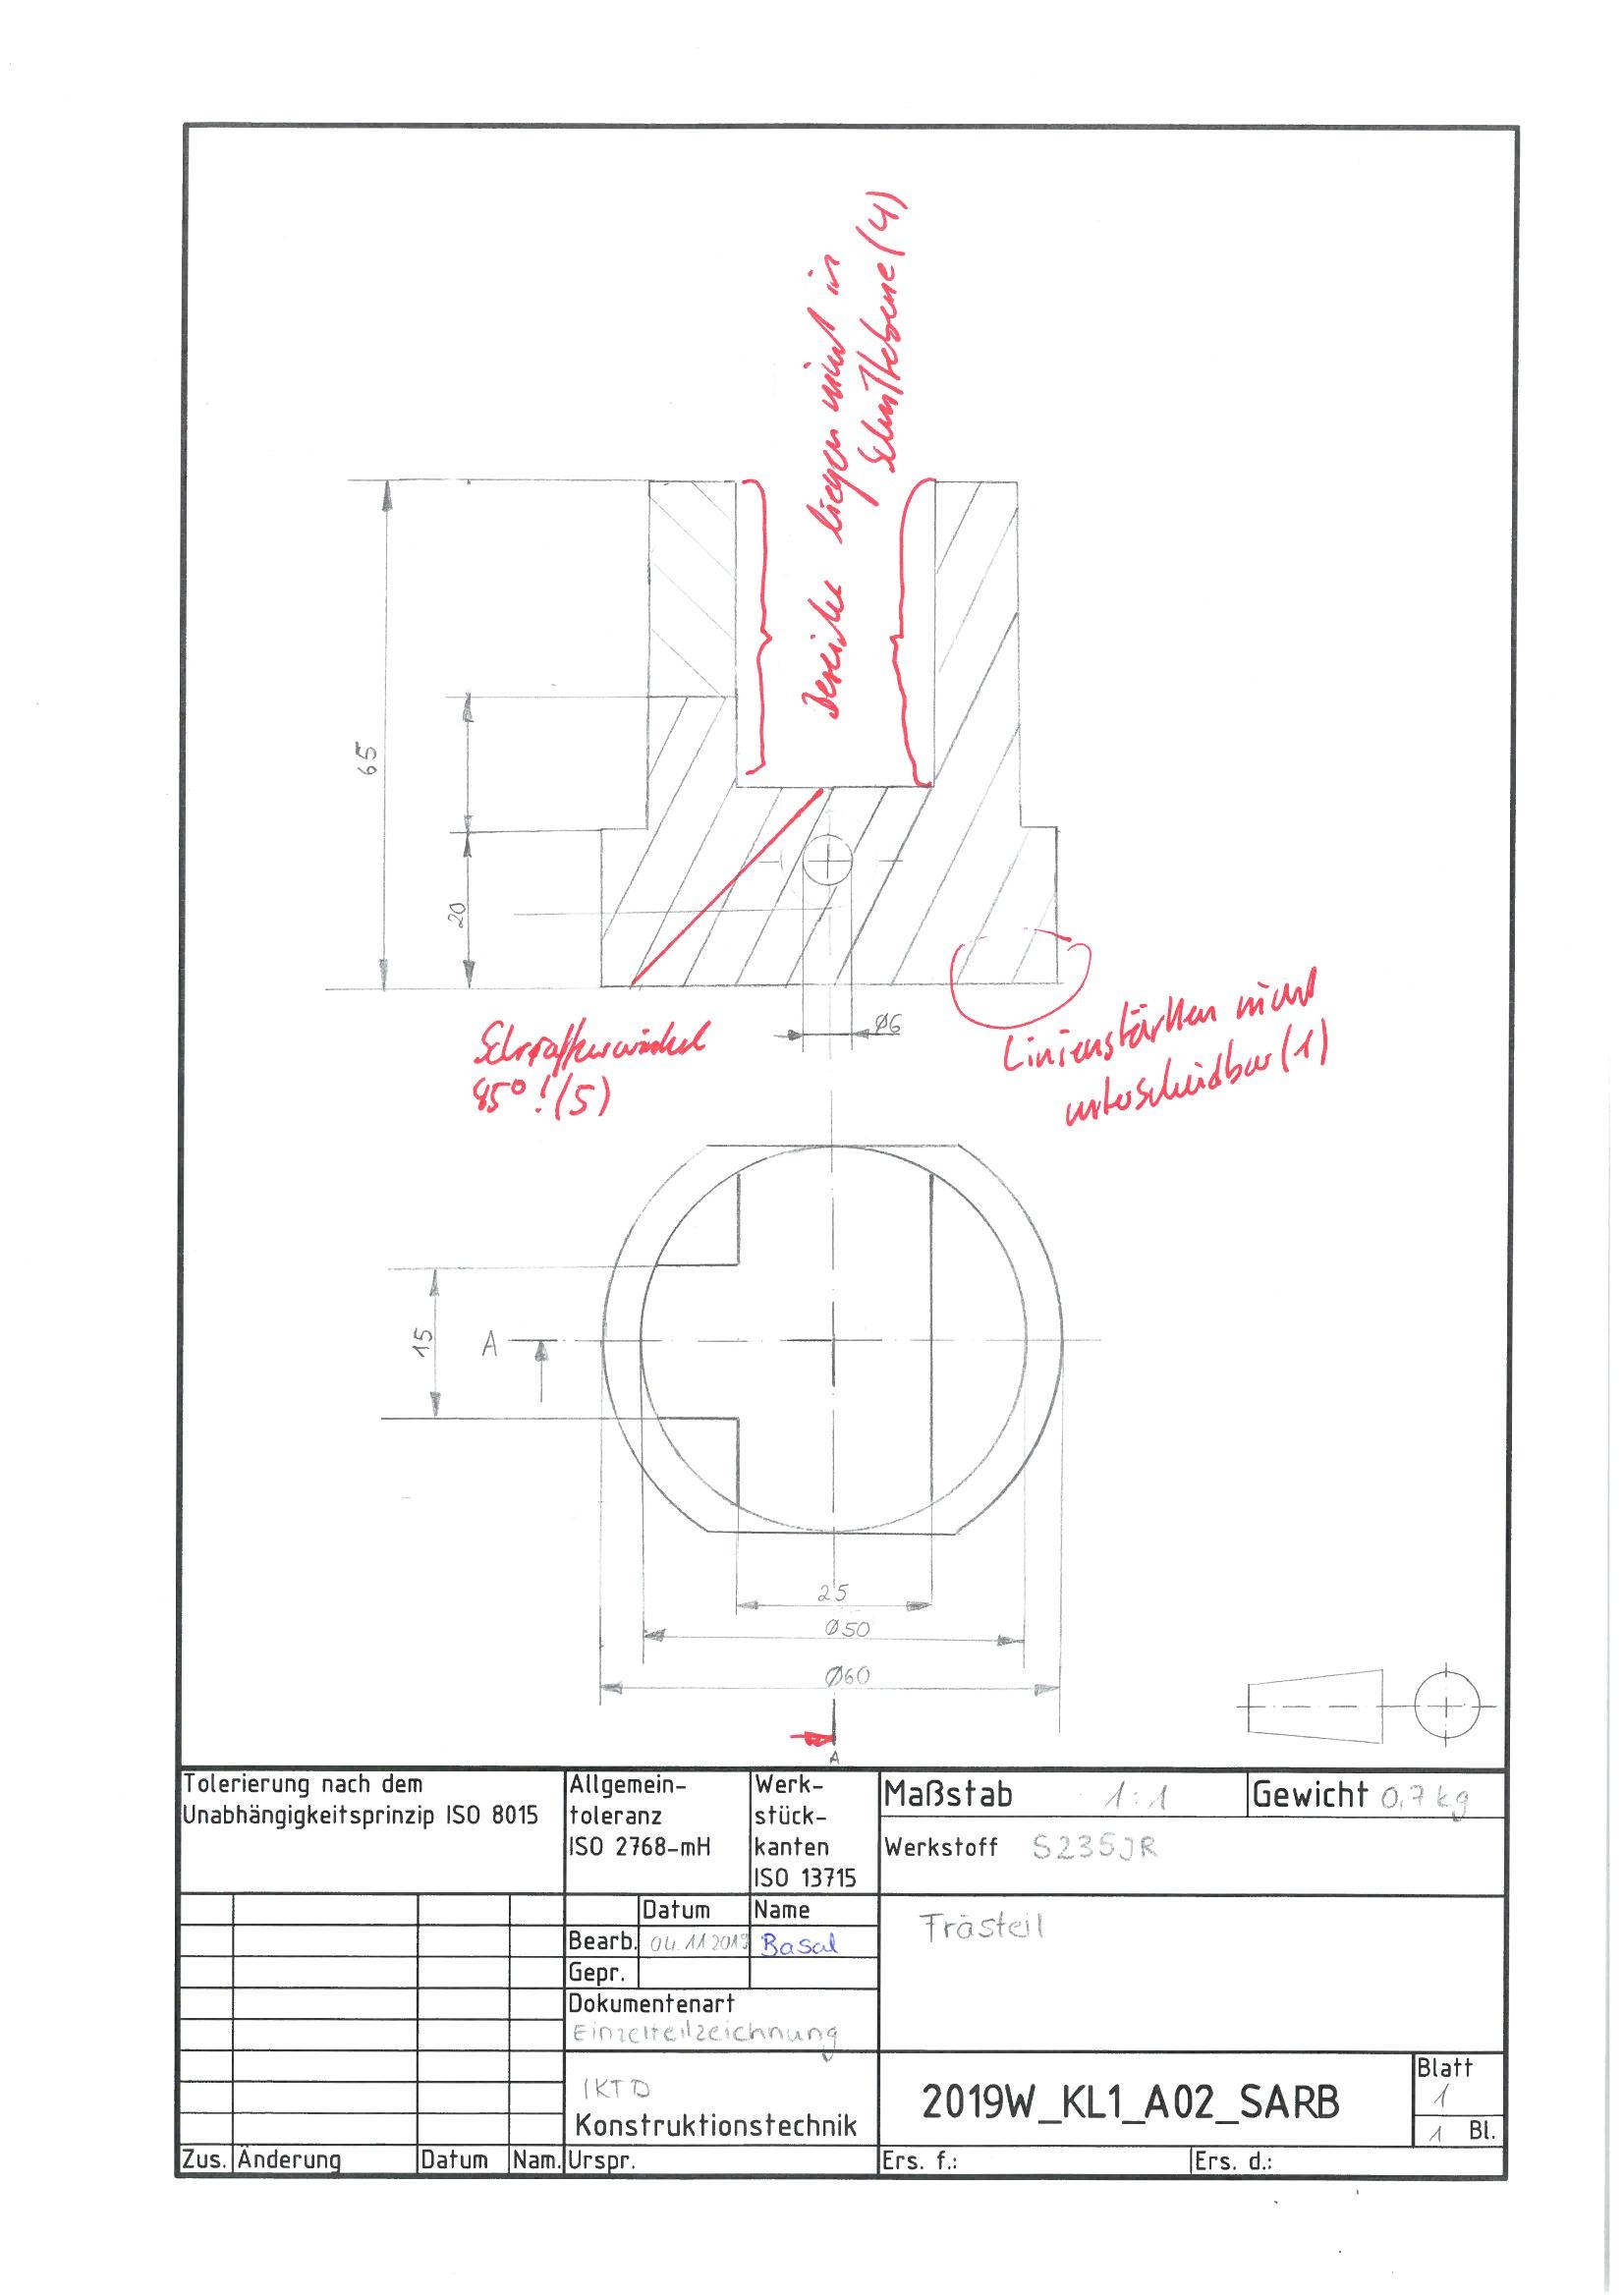 Bereiche liegen nicht in
Schnittebene (4)
65
20
Ø6
Schraffurwinkel
45°! (5)
Linienstärken nicht
unterscheidbar (1)
15
A
25
Ø50
Ø60
A
Tolerierung nach dem
Unabhängigkeitsprinzip ISO 8015
Allgemein-
toleranz
ISO 2768-mH
Werk-
stück-
kanten
ISO 13715
Maßstab 1:1
Gewicht 0,7 kg
Werkstoff S235JR
Datum Name
Bearb. 04.11.2019 Basal
Gepr.
Frästeil
Dokumentenart
Einzelteilzeichnung
IKTD
Konstruktionstechnik
2019W_KL1_A02_SARB
Blatt
1
1 Bl.
Zus. Änderung Datum Nam. Urspr. Ers. f.: Ers. d.: